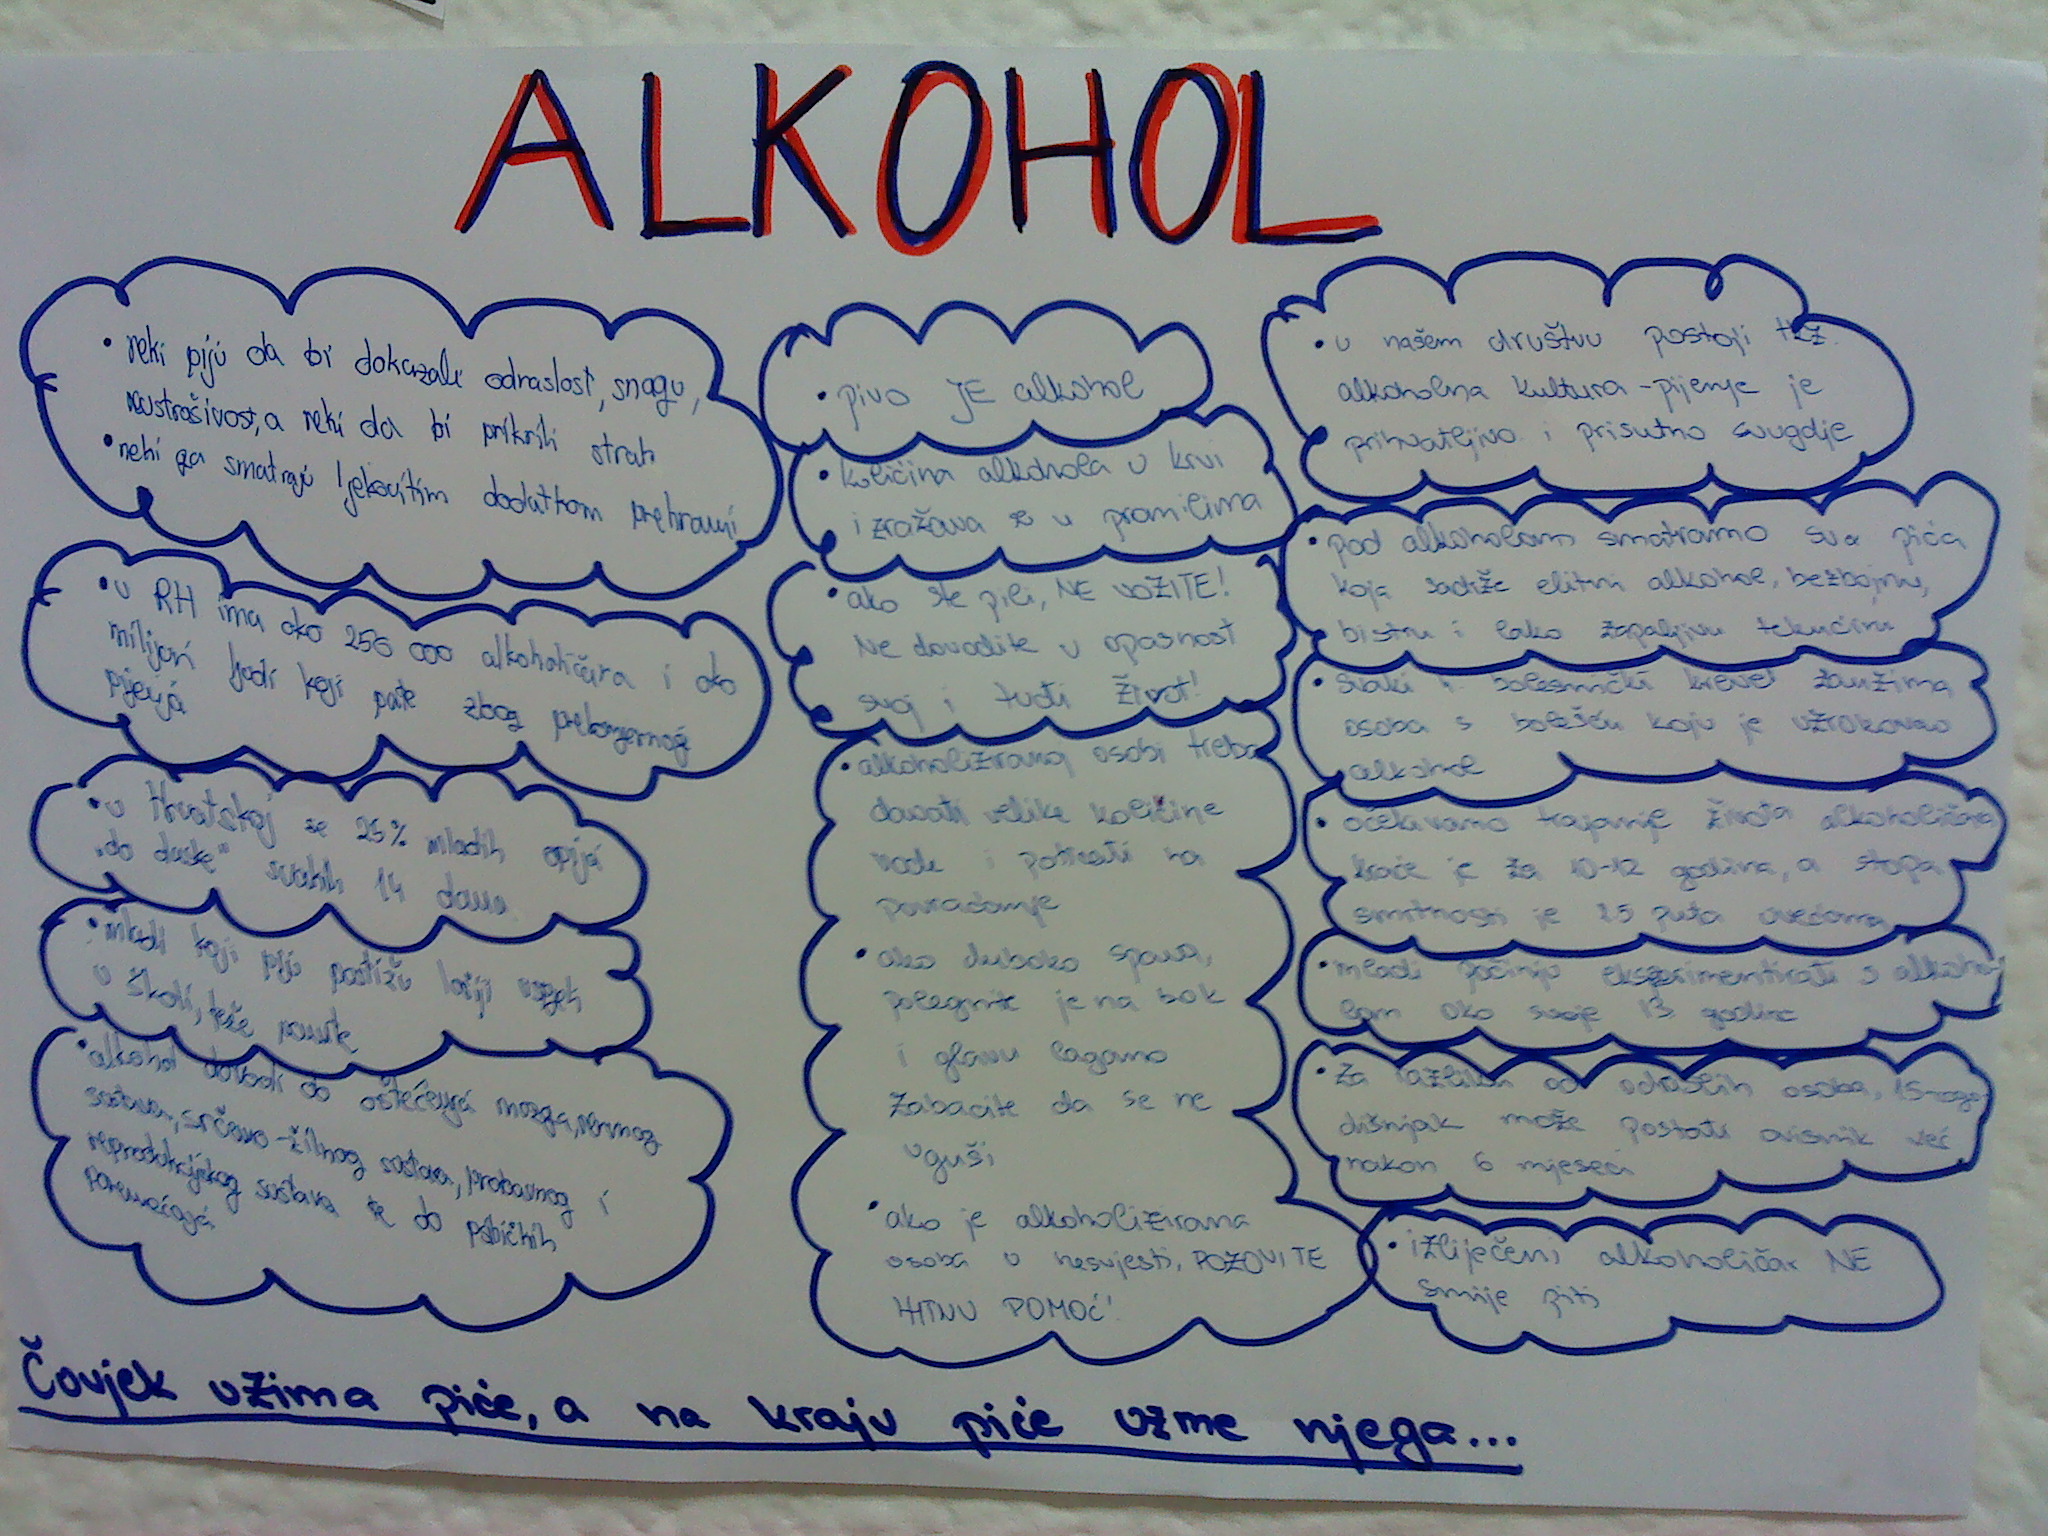 ALKOHOL
• neki piju da bi dokazali odraslost, snagu,
neustrašivost, a neki da bi prikrili strah
• neki ga smatraju ljekovitim dodatkom prehrani
• u RH ima oko 250 000 alkoholičara i oko
milijon ljudi koji pate zbog prekomjernog
pijenja
• u Hrvatskoj se 25% mladih opija
"do daske" svakih 14 dana
• mladi koji piju postižu lošiji uspjeh
u školi, teže
• alkohol dovodi do oštećenja mozga, nervnog
sustava, srčano-žilnog sustava, probavnog i
reprodukcijskog sustava te do psihičkih
poremećaja
• pivo JE alkohol
• količina alkohola u krvi
izražava se u promilima
• ako ste pili, NE VOZITE!
Ne dovodite u opasnost
svoj i tuđi život!
• alkoholiziranoj osobi treba
davati velike količine
vode i poticati na
povraćanje
• ako duboko spava,
polegnite je na bok
i glavu lagano
zabacite da se ne
uguši
• ako je alkoholizirana
osoba u nesvjesti, POZOVITE
HITNU POMOĆ!
• u našem društvu postoji tkz.
alkoholna kultura - pijenje je
prihvatljivo i prisutno svugdje
• pod alkoholom smatramo sva pića
koja sadrže etilni alkohol, bezbojnu,
bistru i lako zapaljivu tekućinu
• svaki bolesnički krevet zauzima
osoba s bolešću koju je uzrokovao
alkohol
• očekivamo trajanje života alkoholičara
kraće je za 10-12 godina, a stopa
smrtnosti je 2,5 puta uvećana
• mladi počinju eksperimentirati s alkoho-
lom oko svoje 13. godine
• Za razliku od odraslih osoba, 15-ogo-
dišnjak može postati ovisnik već
nakon 6 mjeseci
• izliječeni alkoholičar NE
smije piti
Čovjek uzima piće, a na kraju piće uzme njega...